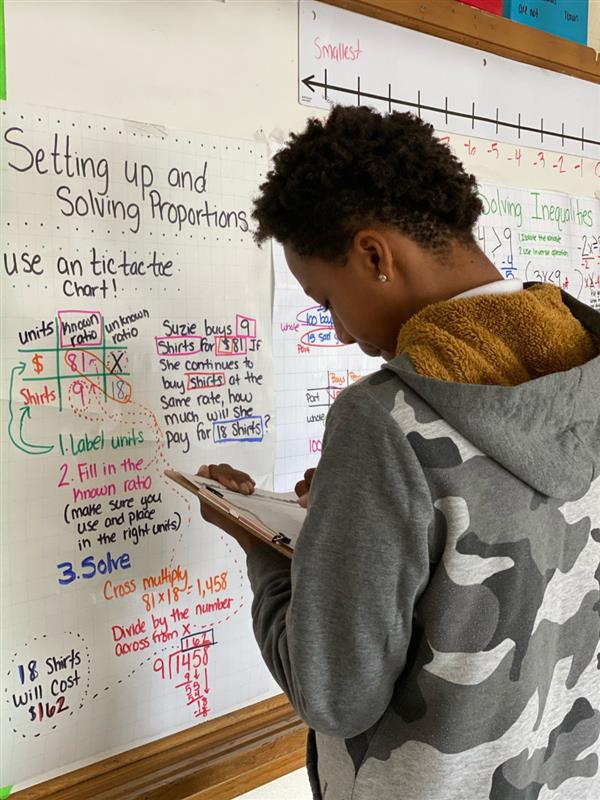 are not
Smallest
-6 -5 -4 -3 -2 -1
Setting up and
Solving Proportions
use an tic tac toe
Chart!
units known ratio unknown ratio
$ 81 X
Shirts 9 18
1. Label units
2. Fill in the
known ratio
(make sure you
use and place
in the right units)
3. Solve
Cross multiply
81 x 18 = 1,458
Divide by the number
across from X
162
9 1458
9
55
54
18
18
18 Shirts
Will Cost
$162
Suzie buys 9
Shirts for $81 If
She continues to
buy shirts at the
same rate, how
much will she
pay for 18 Shirts?
whole
Part
Part
whole
Solving Inequalities